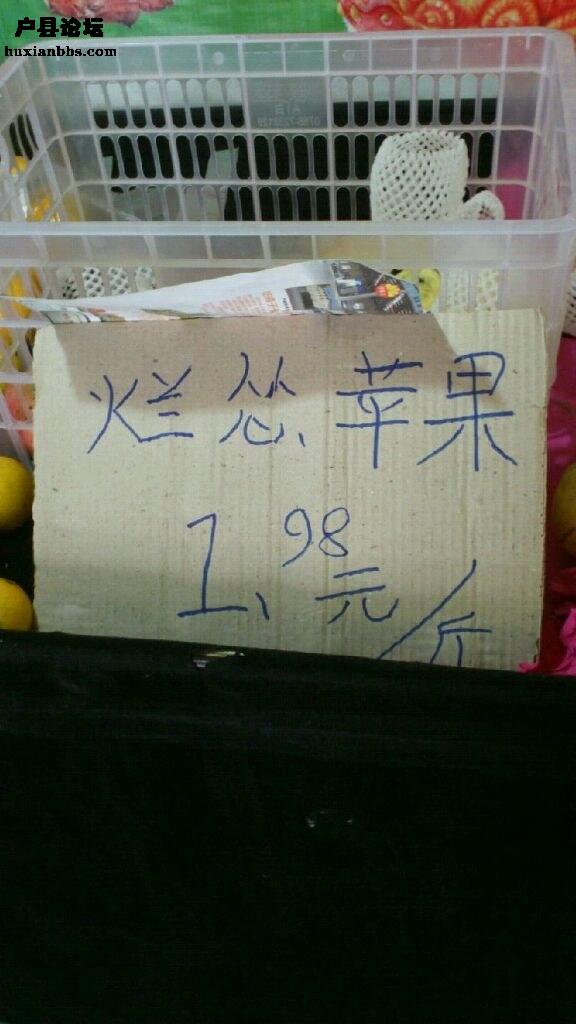 户县论坛
huxianbbs.com
烂怂苹果
1.98元/斤